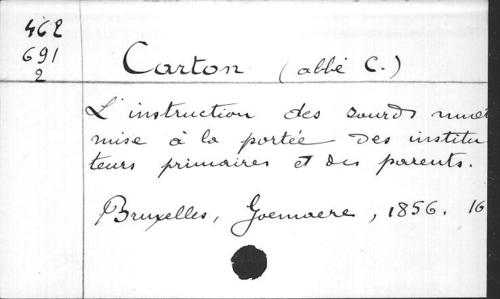 462
691
2
Carton (abbé C.)
L'instruction des sourds muet
mise à la portée des institu
teurs primaires et des parents.
Bruxelles, Goemaere, 1856. 16